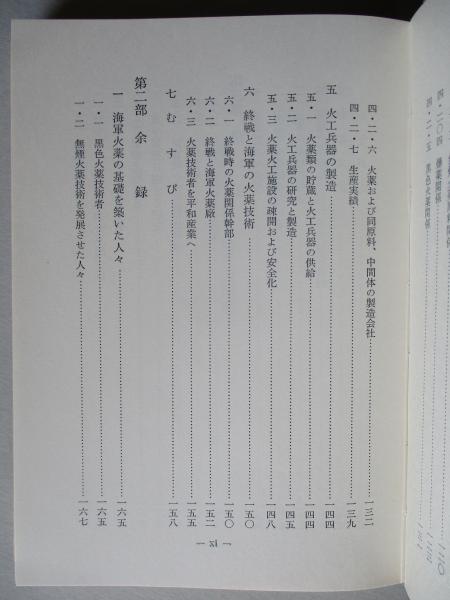 四・二・四 爆薬関係
四・二・五 黒色火薬関係
四・二・六 火薬および同原料、中間体の製造会社……一三二
四・二・七 生産実績……一三九
五 火工兵器の製造……一四四
五・一 火薬類の貯蔵と火工兵器の供給……一四四
五・二 火工兵器の研究と製造……一四五
五・三 火薬火工施設の疎開および安全化……一四八
六 終戦と海軍の火薬技術……一五〇
六・一 終戦時の火薬関係幹部……一五〇
六・二 終戦と海軍火薬廠……一五二
六・三 火薬技術者を平和産業へ……一五五
七 むすび……一五八
第二部 余録
一 海軍火薬の基礎を築いた人々……一六五
一・一 黒色火薬技術者……一六五
一・二 無煙火薬技術を発展させた人々……一六七
— xi —